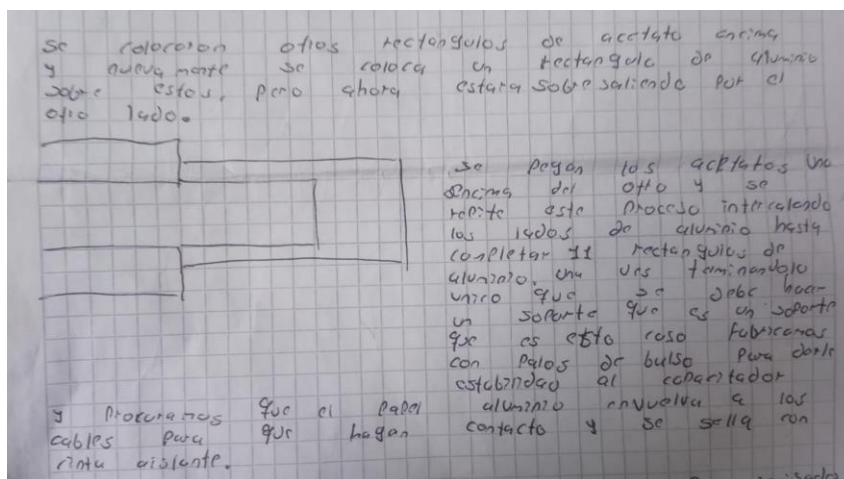 se colocaron otros rectangulos de acetato encima
y nueva mente se coloca un rectangulo de aluminio
sobre estos, pero ahora estara sobre saliendo por el
otro lado.
se pegan los acetatos uno
encima del otto y se
repite este proceso intercalendo
los lados de aluminio hasta
completar 11 rectangulos de
aluminio, una ves terminandolo
unico que se debe hacer
un soporte que es un soporte
que es esto caso fabricamos
con palos de bulso para darle
estabindad al capacitador
y procuramos que el papel aluminio envuelva a los
cables para que hagan contacto y se sella con
cinta aislante.